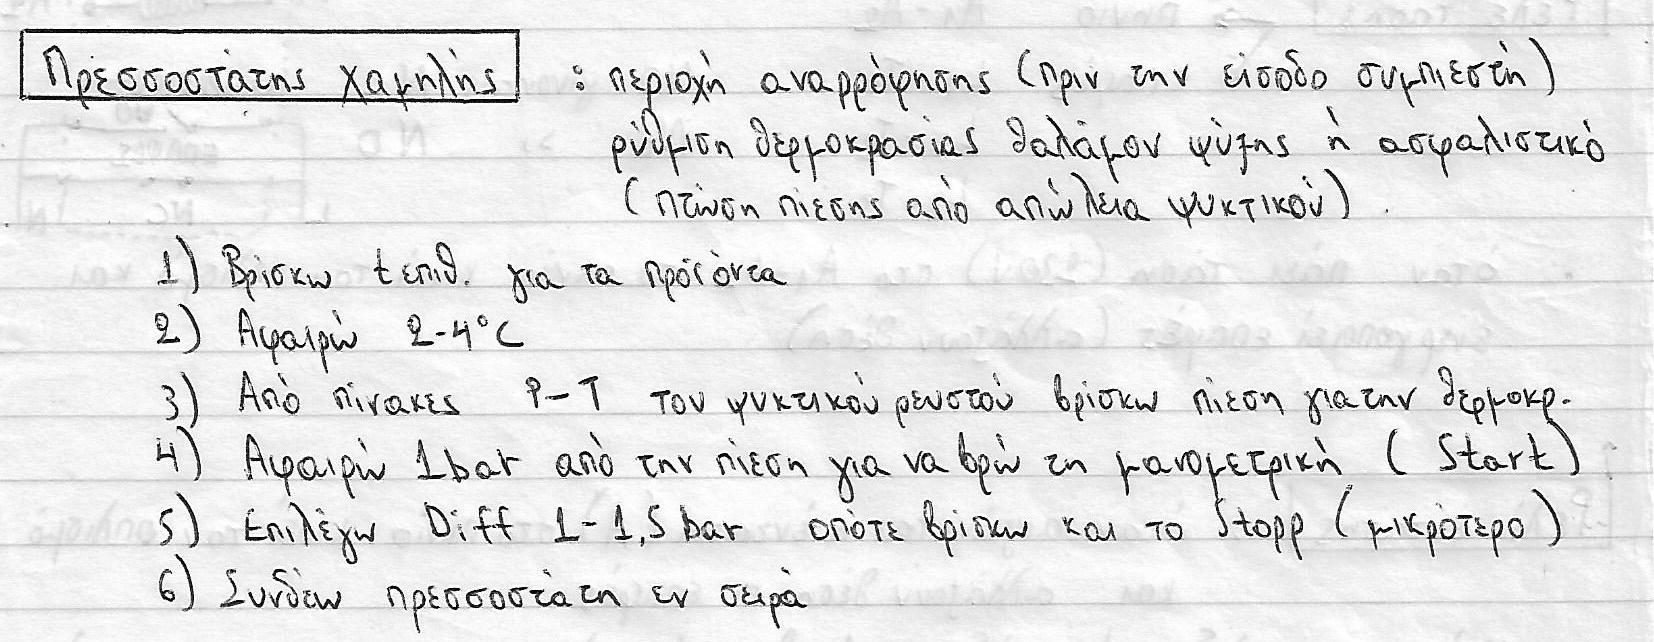 Πρεσσοστάτης χαμηλής : περιοχή αναρρόφησης (πριν την είσοδο συμπιεστή)
ρύθμιση θερμοκρασίας θαλάμου ψύξης ή ασφαλιστικό
(πτώση πίεσης από απώλεια ψυκτικού).
1) Βρίσκω t επιθ. για τα προϊόντα
2) Αφαιρώ 2-4°C
3) Από πίνακες P-T του ψυκτικού ρευστού βρίσκω πίεση για την θερμοκρ.
4) Αφαιρώ 1 bar από την πίεση για να βρώ τη μανομετρική (Start)
5) Επιλέγω Diff 1-1,5 bar οπότε βρίσκω και το Stopp (μικρότερο)
6) Συνδέω πρεσσοστάτη εν σειρά